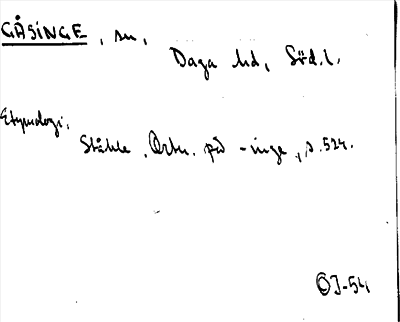 GÅSINGE, sn,
Daga hd, Söd.l.
Etymologi.
Ståhle, Ortn. på -inge, s. 524.
ÖJ-54